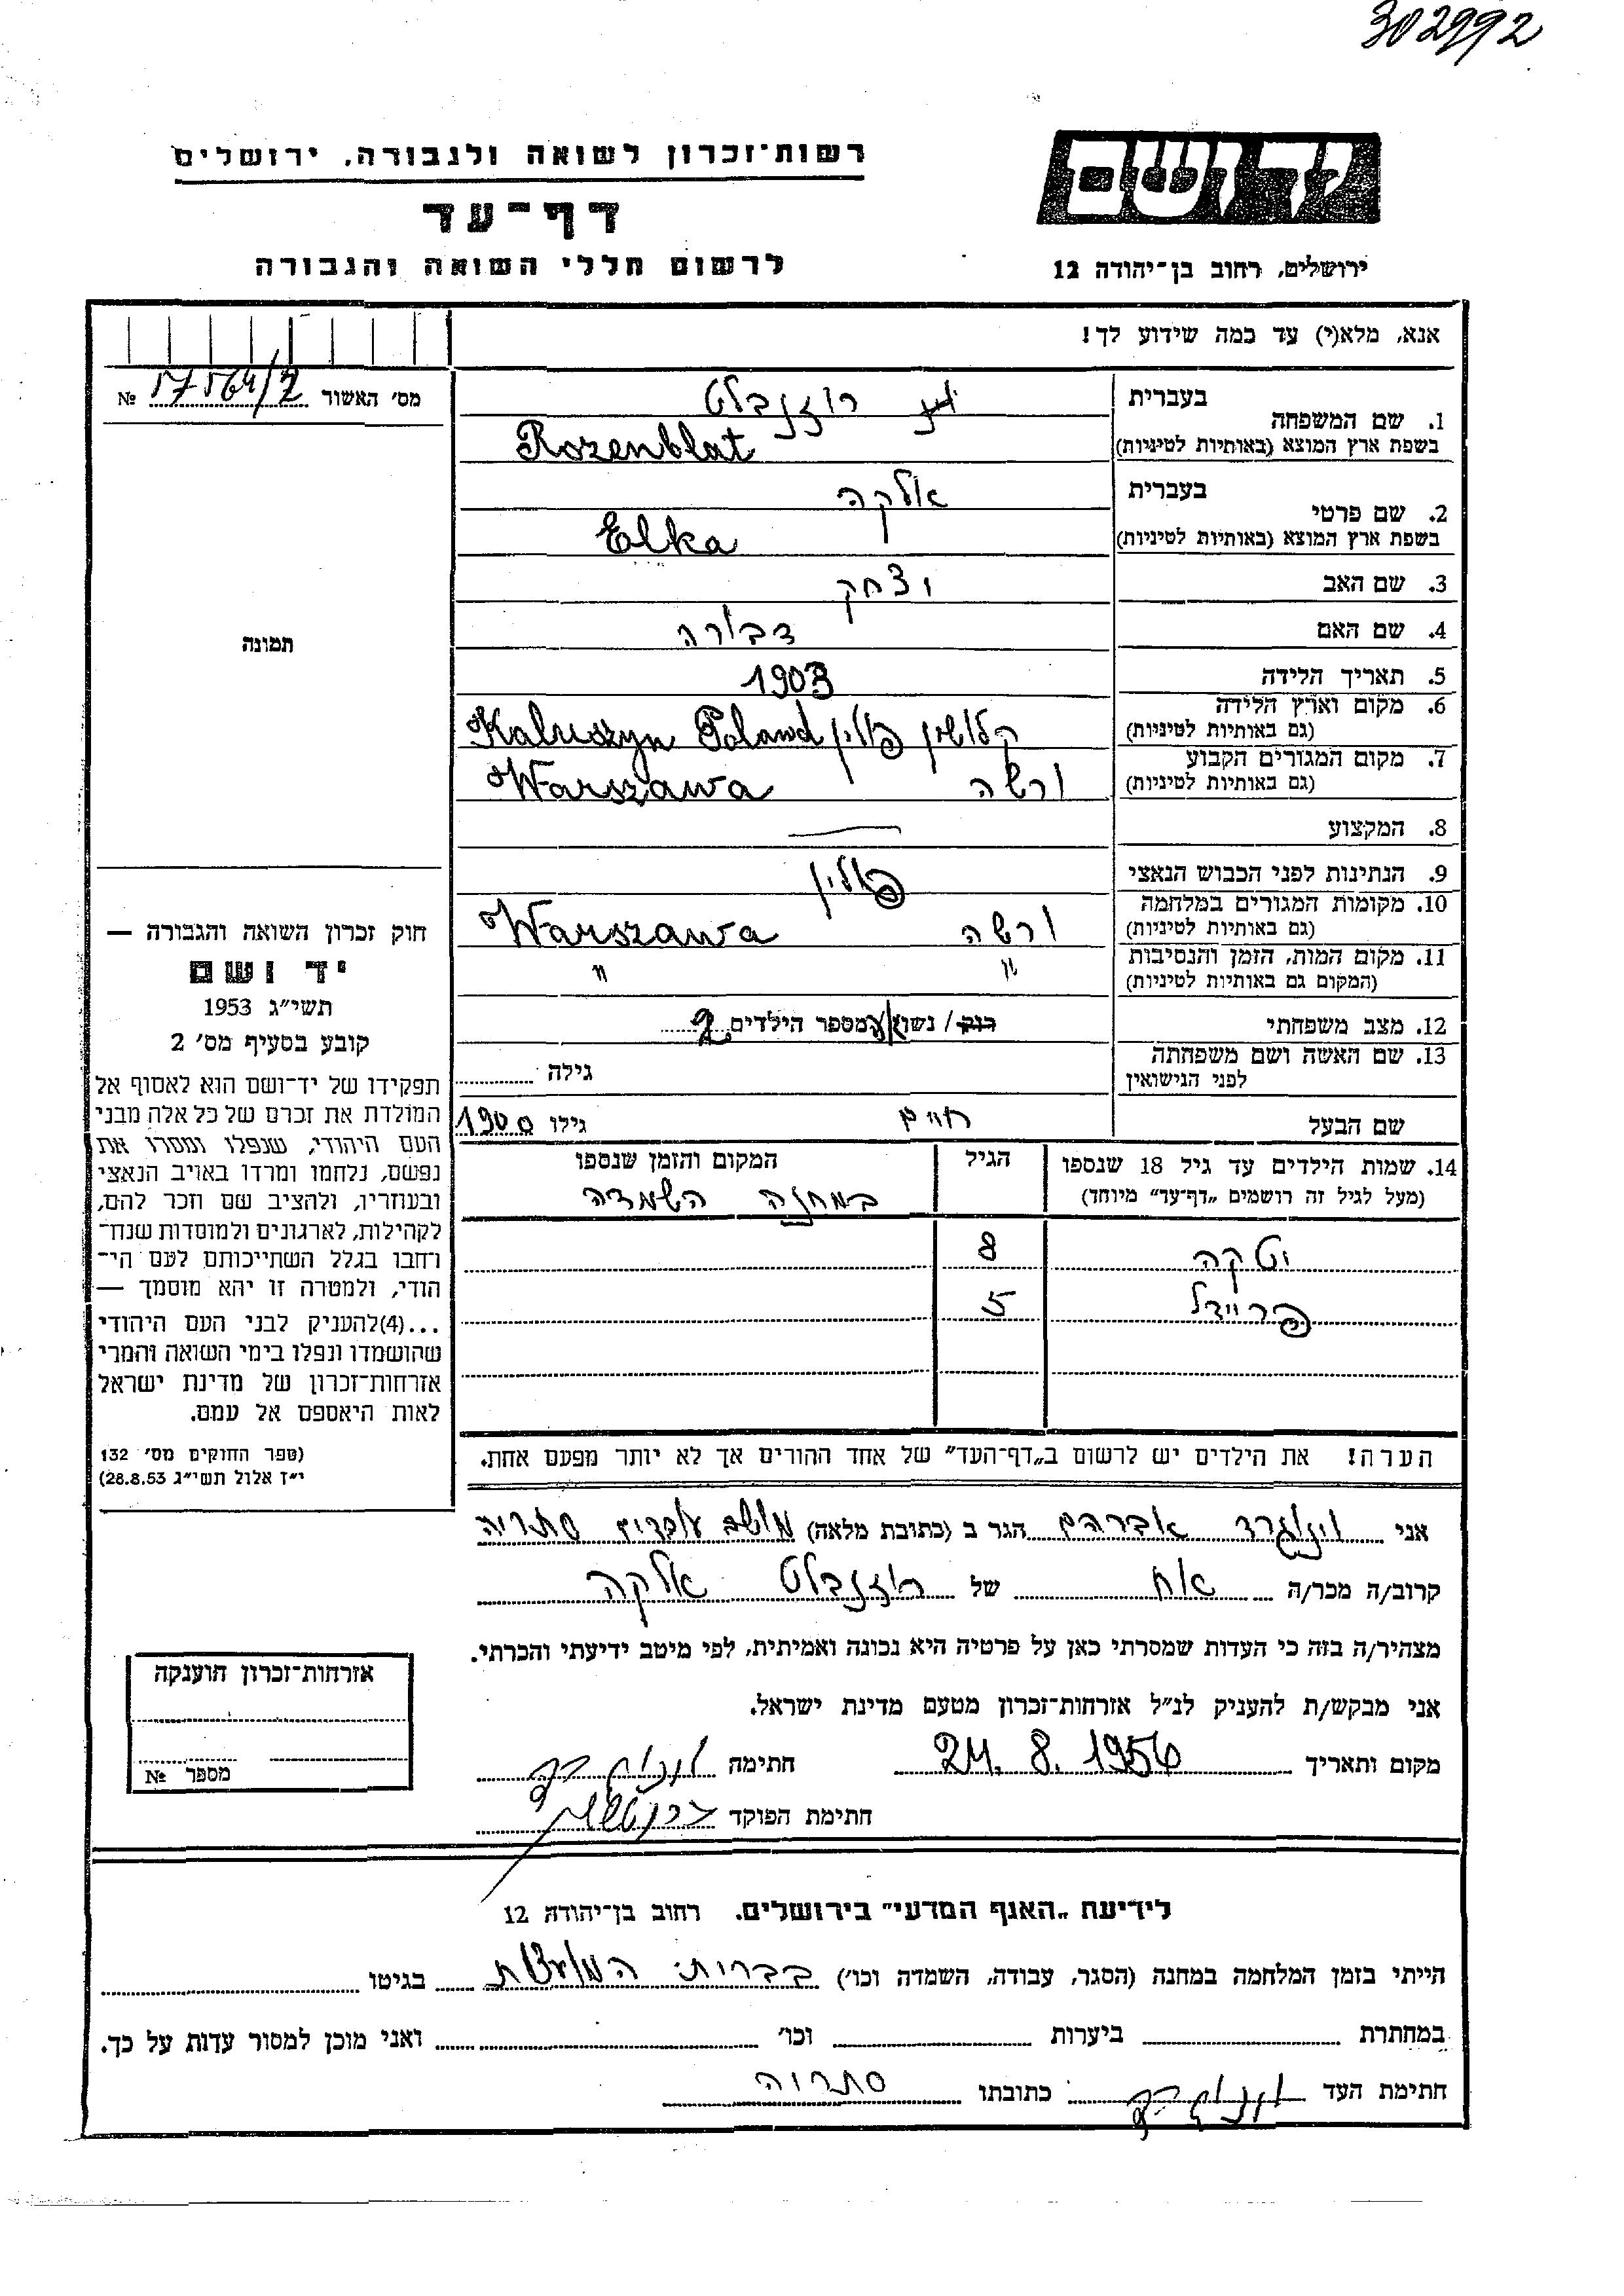 302992
רשות־זכרון לשואה ולגבורה, ירושלים
יד ושם
דף־עד
לרשום חללי השואה והגבורה
ירושלים, רחוב בן־יהודה 12
אנא, מלא(י) עד כמה שידוע לך!
מס׳ האשור 17564/2 №
1. שם המשפחה
בעברית רוזנבלט
בשפת ארץ המוצא (באותיות לטיניות) Rozenblat
2. שם פרטי
בעברית אלקה
בשפת ארץ המוצא (באותיות לטיניות) Elka
3. שם האב יצחק
4. שם האם דבורה
5. תאריך הלידה 1903
6. מקום וארץ הלידה
(גם באותיות לטיניות) קלושין פולין Kaluszyn Poland
7. מקום המגורים הקבוע
(גם באותיות לטיניות) ורשה Warszawa
8. המקצוע —
9. הנתינות לפני הכבוש הנאצי פולין
10. מקומות המגורים במלחמה
(גם באותיות לטיניות) ורשה Warszawa
11. מקום המות, הזמן והנסיבות
(המקום גם באותיות לטיניות) " "
12. מצב משפחתי רווק / נשואה מספר הילדים 2
13. שם האשה ושם משפחתה
לפני הנישואין גילה
שם הבעל חיים גילו 1900
14. שמות הילדים עד גיל 18 שנספו הגיל המקום והזמן שנספו
(מעל לגיל זה רושמים „דף־עד״ מיוחד) במחנה השמדה
יטקה 8
פריידל 5
תמונה
חוק זכרון השואה והגבורה —
יד ושם
תשי״ג 1953
קובע בסעיף מס׳ 2
תפקידו של יד־ושם הוא לאסוף אל
המולדת את זכרם של כל אלה מבני
העם היהודי, שנפלו ומסרו את
נפשם, נלחמו ומרדו באויב הנאצי
ובעוזריו, ולהציב שם וזכר להם,
לקהילות, לארגונים ולמוסדות שנח־
רחבו בגלל השתייכותם לעם הי־
הודי, ולמטרה זו יהא מוסמך —
...(4)להעניק לבני העם היהודי
שהושמדו ונפלו בימי השואה והמרי
אזרחות־זכרון של מדינת ישראל
לאות היאספם אל עמם.
(ספר החוקים מס׳ 132
י״ז אלול תשי״ג 28.8.53)
הערה! את הילדים יש לרשום ב„דף־העד״ של אחד ההורים אך לא יותר מפעם אחת.
אני וינוגרד אברהם הגר ב (כתובת מלאה) מושב עובדים סתריה
קרוב/ה מכר/ה אח של רוזנבלט אלקה
מצהיר/ה בזה כי העדות שמסרתי כאן על פרטיה היא נכונה ואמיתית, לפי מיטב ידיעתי והכרתי.
אני מבקש/ת להעניק לנ״ל אזרחות־זכרון מטעם מדינת ישראל.
מקום ותאריך 24. 8. 1956 חתימה
חתימת הפוקד
אזרחות־זכרון הוענקה
מספר №
לידיעת „האגף המדעי״ בירושלים. רחוב בן־יהודה 12
הייתי בזמן המלחמה במחנה (הסגר, עבודה, השמדה וכו׳) בברית המועצות בגיטו
במחתרת ביערות וכו׳ ואני מוכן למסור עדות על כך.
חתימת העד כתובתו סתריה